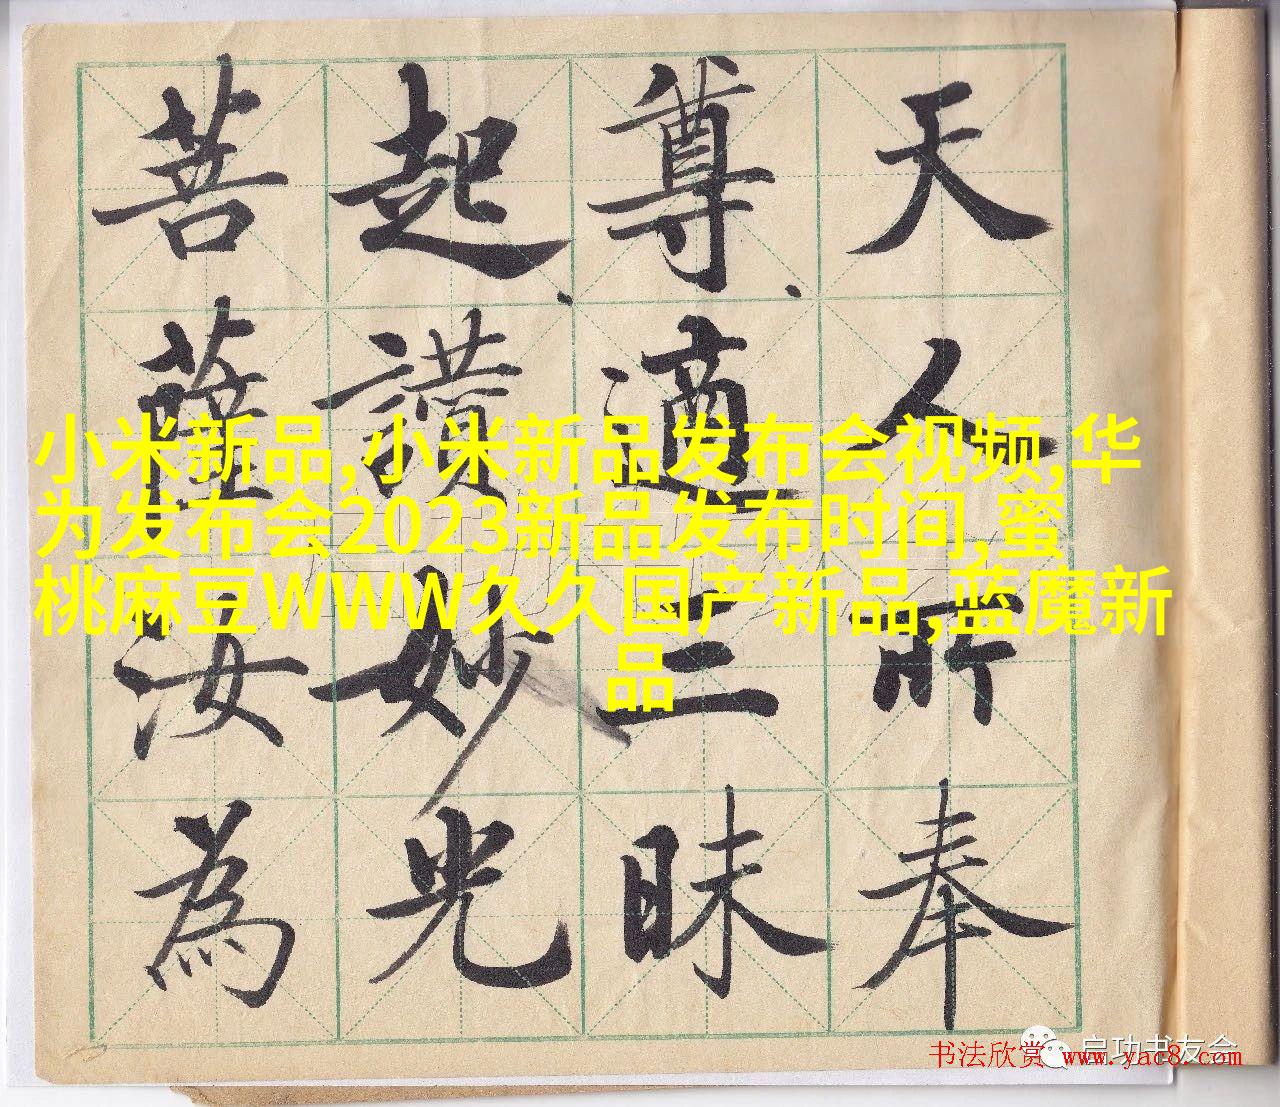 天人所奉
尊適三昧
起讃妙光
菩薩汝為
小米新品,小米新品发布会视频,华
为发布会2023新品发布时间,蜜
桃麻豆WWW久久国产新品,蓝魔新
品
启功书友会
书法欣赏 www.yac8.com